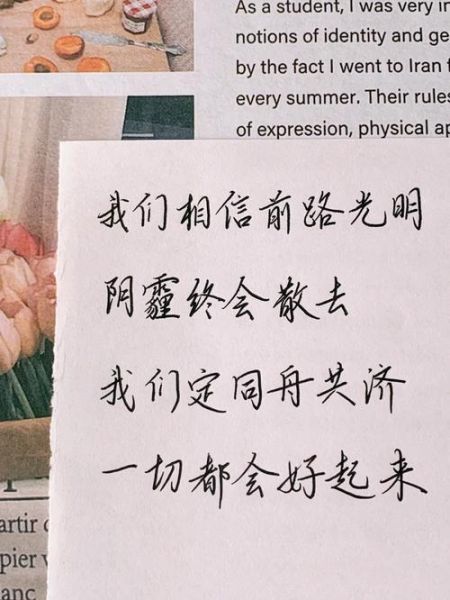 As a student, I was very in
notions of identity and ge
by the fact I went to Iran f
every summer. Their rules
of expression, physical ap
我们相信前路光明
阴霾终会散去
我们定同舟共济
一切都会好起来
artir
pier
anc